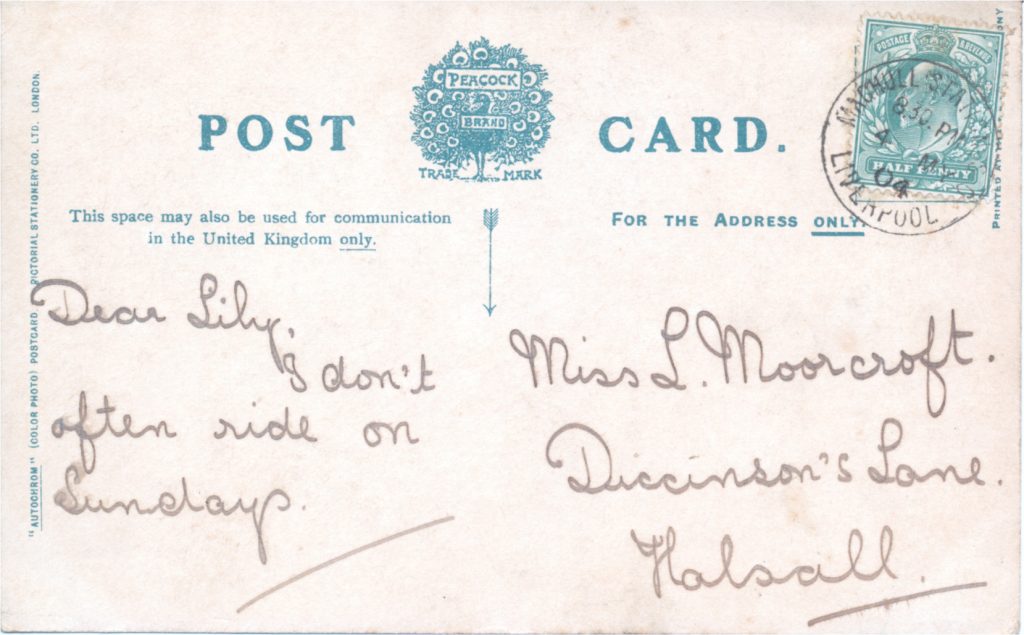 POST CARD.
PEACOCK
BRAND
TRADE MARK
This space may also be used for communication
in the United Kingdom only.
FOR THE ADDRESS ONLY.
POSTAGE & REVENUE
HALF PENNY
MAGHULL STATION
8.30 PM
4
04
LIVERPOOL
PRINTED AT
"AUTOCHROM" (COLOR PHOTO) POSTCARD. PICTORIAL STATIONERY CO. LTD. LONDON.
Dear Lily,
I don't
often ride on
Sundays.
Miss L. Moorcroft.
Diccinson's Lane.
Halsall.